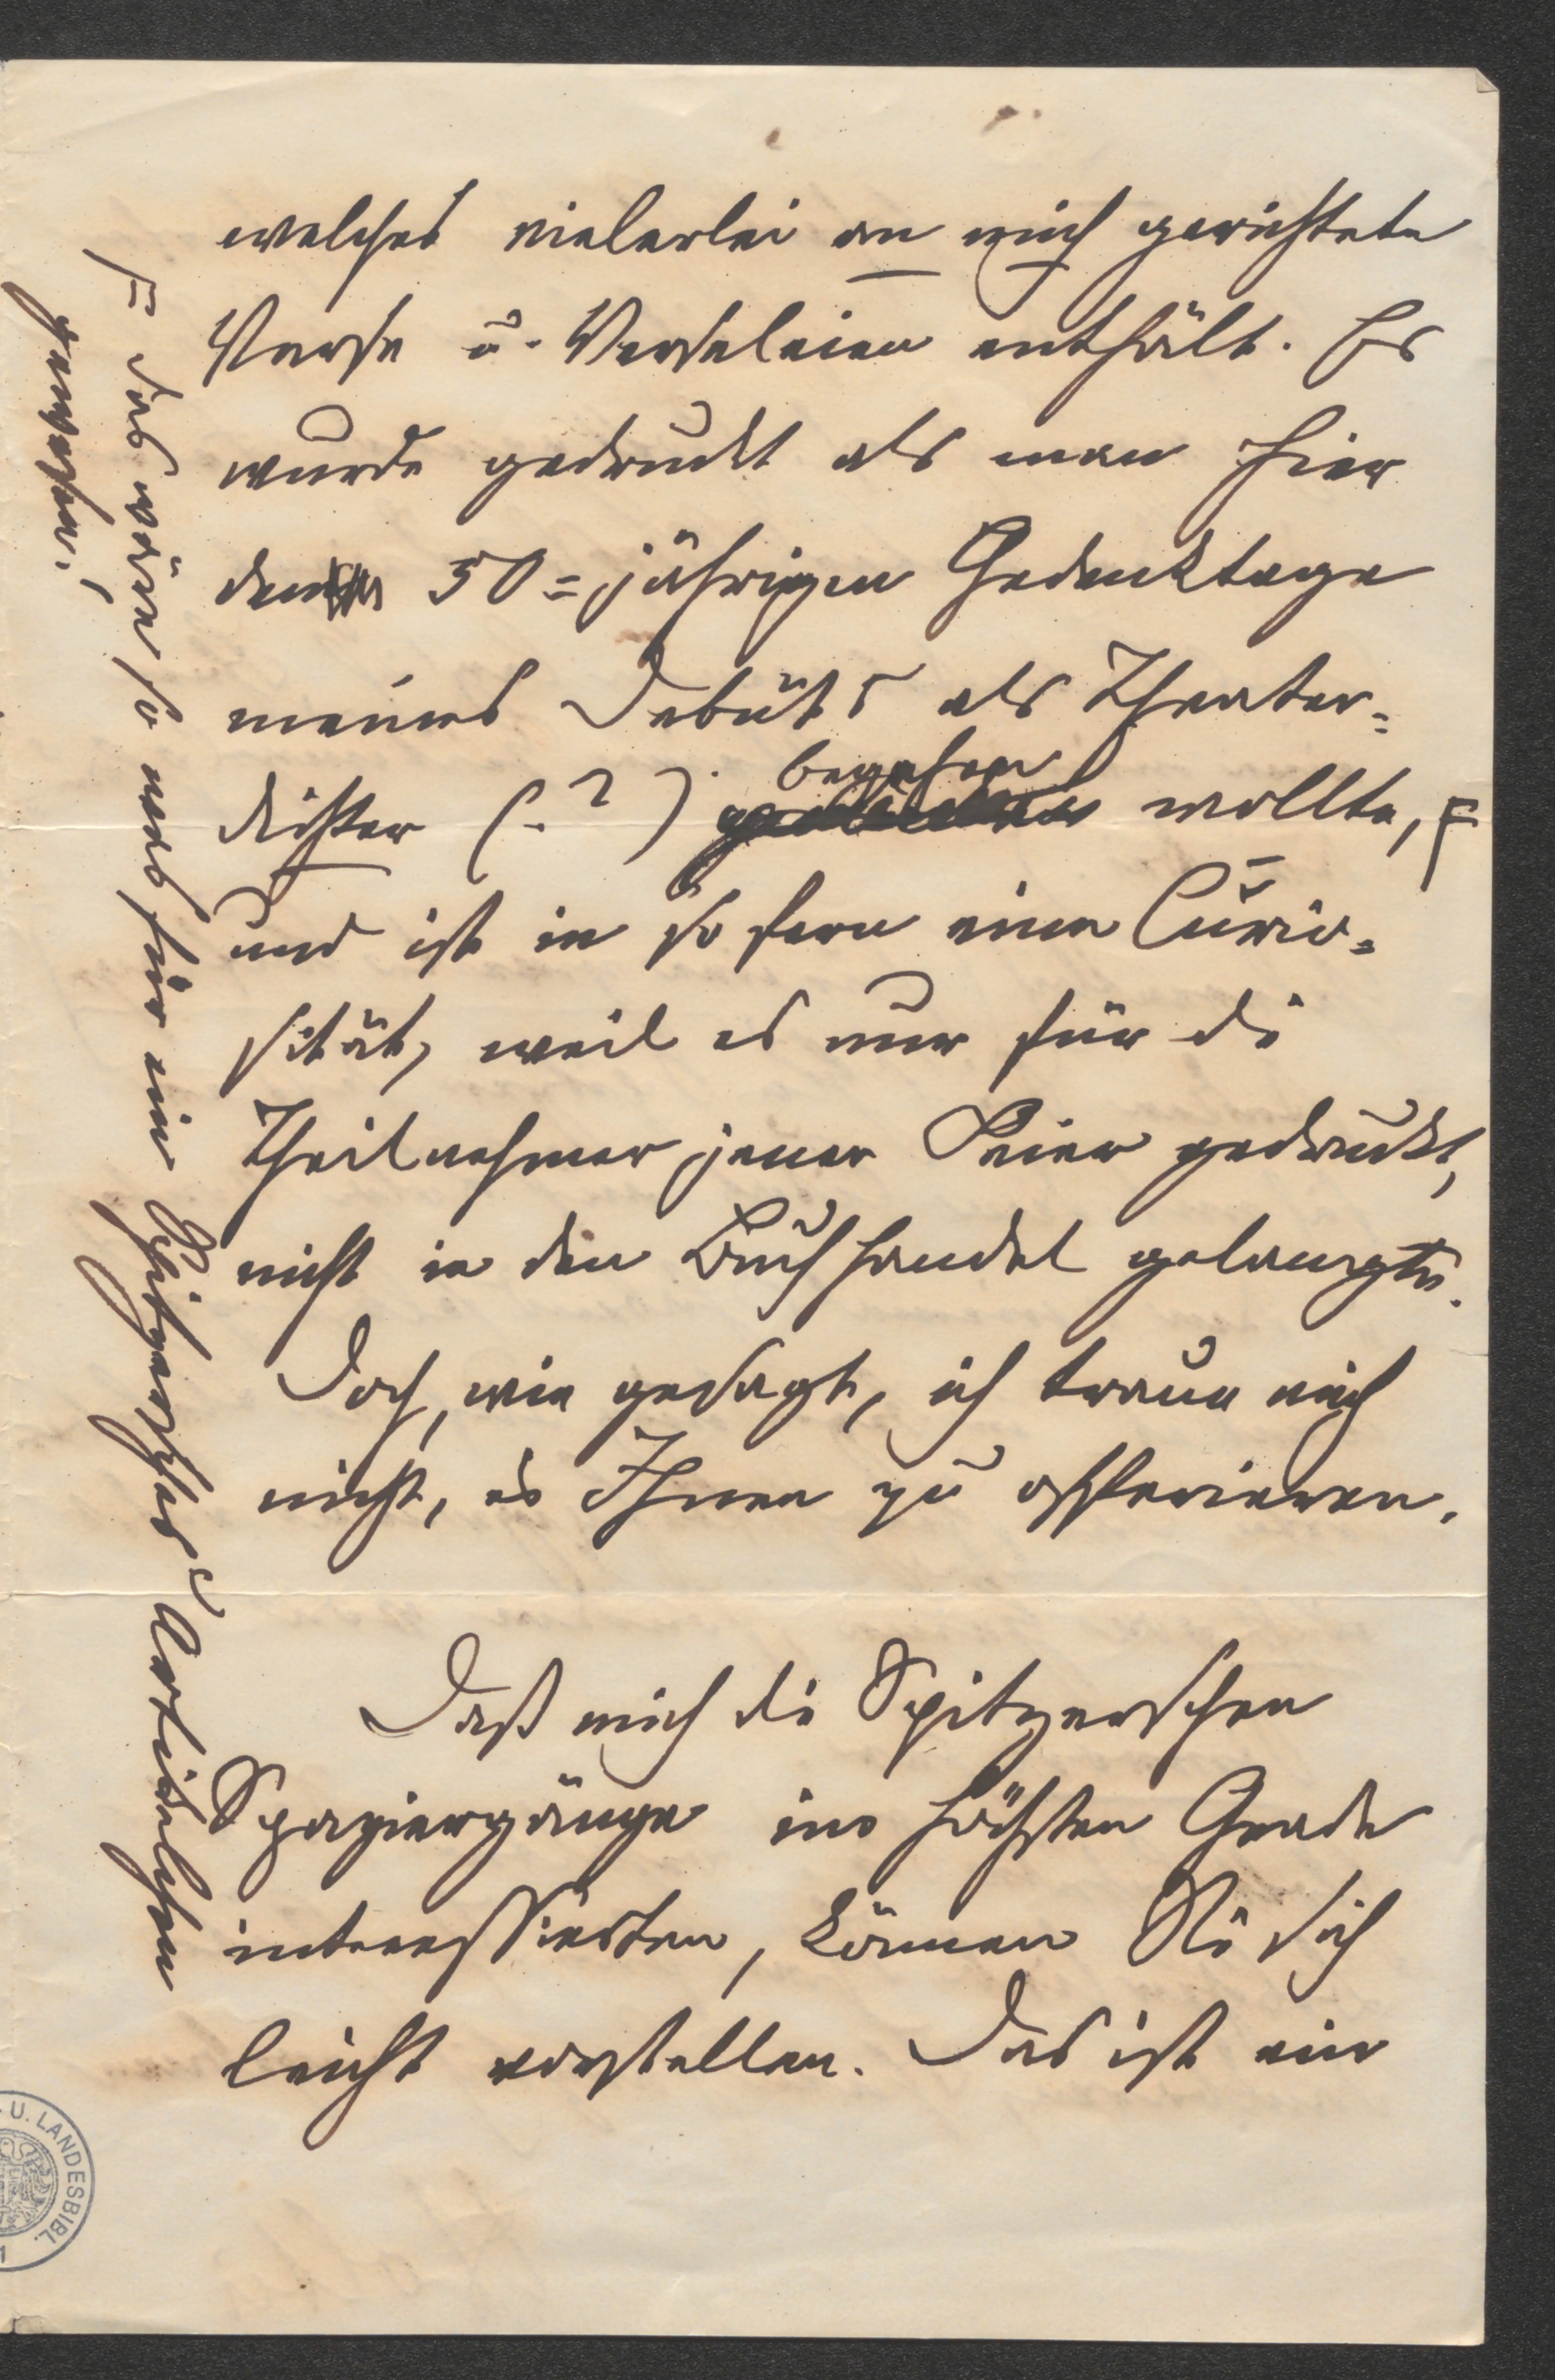 welches vielerlei an mich gerichtete
Verse u. Verseleien enthält. Es
wurde gedruckt als man hier
den 50=jährigen Gedenktage
meines Debüts als Theater=
dichter (?) begehen wollte, F
und ist in so fern eine Curio=
sität, weil es nur für di
Theilnehmer jener Feier gedruckt,
nicht in den Buchhandel gelangte.
Doch, wie gesagt, ich traue mich
nicht, es Ihnen zu offerieren.
Daß mich di Spitzerschen
Spaziergänge im höchsten Grade
interessierten, können Si sich
leicht vorstellen. Das ist ein
F das wäre so was für ein Spitzersches Artikelchen
gewesen!
U. LANDESBIBL.